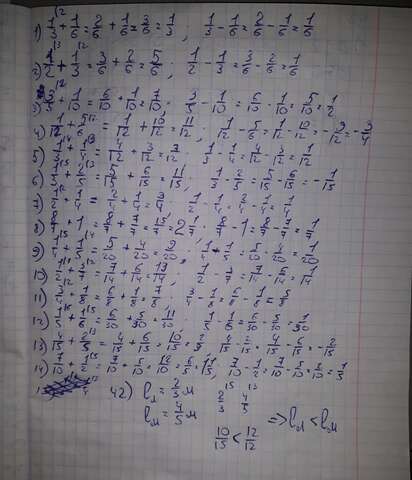 1) 1/3 + 1/6 = 2/6 + 1/6 = 3/6 = 1/3 ; 1/3 - 1/6 = 2/6 - 1/6 = 1/6
2) 1/2 + 1/3 = 3/6 + 2/6 = 5/6 ; 1/2 - 1/3 = 3/6 - 2/6 = 1/6
3) 3/5 + 1/10 = 6/10 + 1/10 = 7/10 ; 3/5 - 1/10 = 6/10 - 1/10 = 5/10 = 1/2
4) 1/12 + 5/6 = 1/12 + 10/12 = 11/12 ; 1/12 - 5/6 = 1/12 - 10/12 = - 9/12 = - 3/4
5) 1/3 + 1/4 = 4/12 + 3/12 = 7/12 ; 1/3 - 1/4 = 4/12 - 3/12 = 1/12
6) 1/3 + 2/5 = 5/15 + 6/15 = 11/15 ; 1/3 - 2/5 = 5/15 - 6/15 = - 1/15
7) 1/2 + 1/4 = 2/4 + 1/4 = 3/4 ; 1/2 - 1/4 = 2/4 - 1/4 = 1/4
8) 8/7 + 1 = 8/7 + 7/7 = 15/7 = 2 1/7 ; 8/7 - 1 = 8/7 - 7/7 = 1/7
9) 1/4 + 1/5 = 5/20 + 4/20 = 9/20 ; 1/4 - 1/5 = 5/20 - 4/20 = 1/20
10) 1/2 + 3/7 = 7/14 + 6/14 = 13/14 ; 1/2 - 3/7 = 7/14 - 6/14 = 1/14
11) 3/4 + 1/8 = 6/8 + 1/8 = 7/8 ; 3/4 - 1/8 = 6/8 - 1/8 = 5/8
12) 1/5 + 1/6 = 6/30 + 5/30 = 11/30 ; 1/5 - 1/6 = 6/30 - 5/30 = 1/30
13) 4/15 + 2/5 = 4/15 + 6/15 = 10/15 = 2/3 ; 4/15 - 2/5 = 4/15 - 6/15 = - 2/15
14) 7/10 + 1/2 = 7/10 + 5/10 = 12/10 = 6/5 ; 7/10 - 1/2 = 7/10 - 5/10 = 2/10 = 1/5
42) l л = 2/3 м 2/3 4/5
l м = 4/5 м => l л < l м
10/15 < 12/12